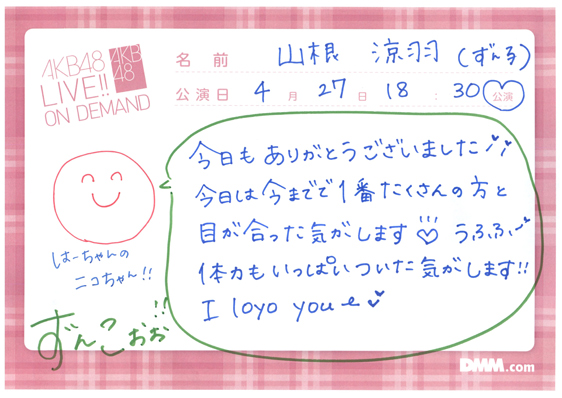 AKB48
LIVE!!
ON DEMAND
AKB
48
名前 山根 涼羽 (ずんる)
公演日 4月27日 18:30 公演
今日もありがとうございました!!
今日は今までで1番たくさんの方と
目が合った気がします♡ うふふ
体力もいっぱいついた気がします!!
I loyo you
はーちゃんの
ニコちゃん!!
ずんこぉぉ!!
DMM.com